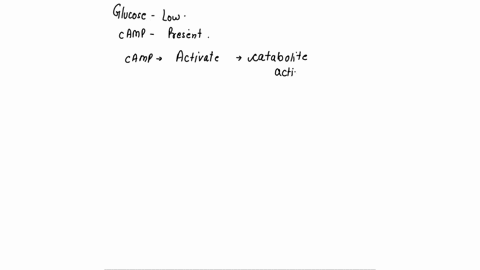 Glucose - Low.
cAMP - Present.
cAMP → Activate → catabolite
acti